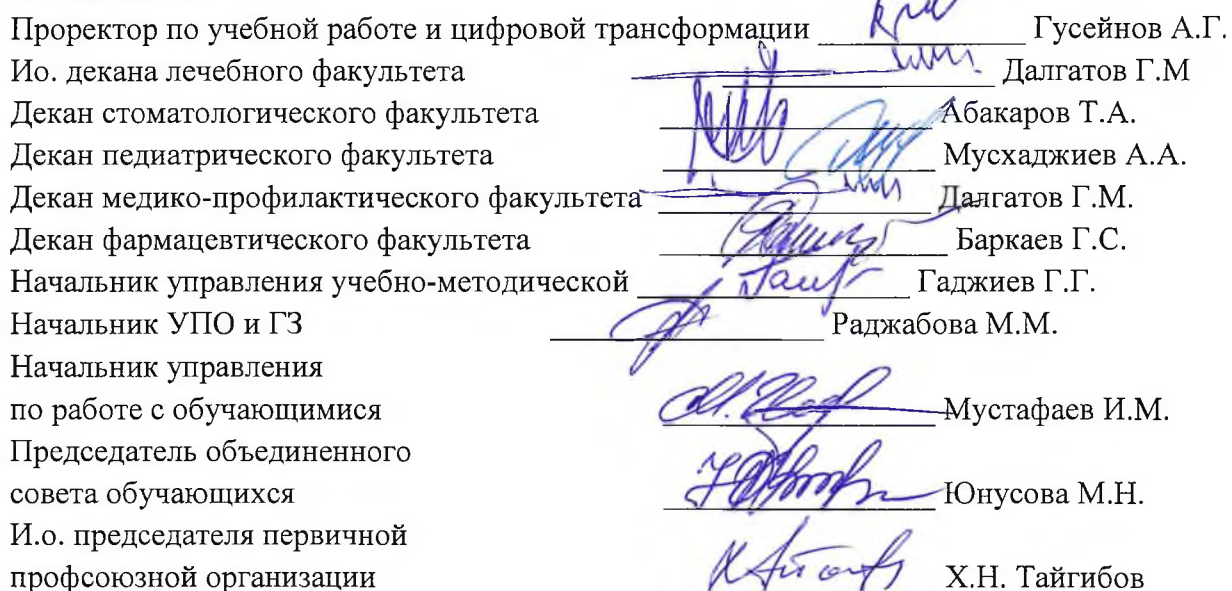 Проректор по учебной работе и цифровой трансформации ____________ Гусейнов А.Г.
Ио. декана лечебного факультета ____________ Далгатов Г.М
Декан стоматологического факультета ____________ Абакаров Т.А.
Декан педиатрического факультета ____________ Мусхаджиев А.А.
Декан медико-профилактического факультета ____________ Далгатов Г.М.
Декан фармацевтического факультета ____________ Баркаев Г.С.
Начальник управления учебно-методической ____________ Гаджиев Г.Г.
Начальник УПО и ГЗ ____________ Раджабова М.М.
Начальник управления
по работе с обучающимися ____________ Мустафаев И.М.
Председатель объединенного
совета обучающихся ____________ Юнусова М.Н.
И.о. председателя первичной
профсоюзной организации Х.Н. Тайгибов